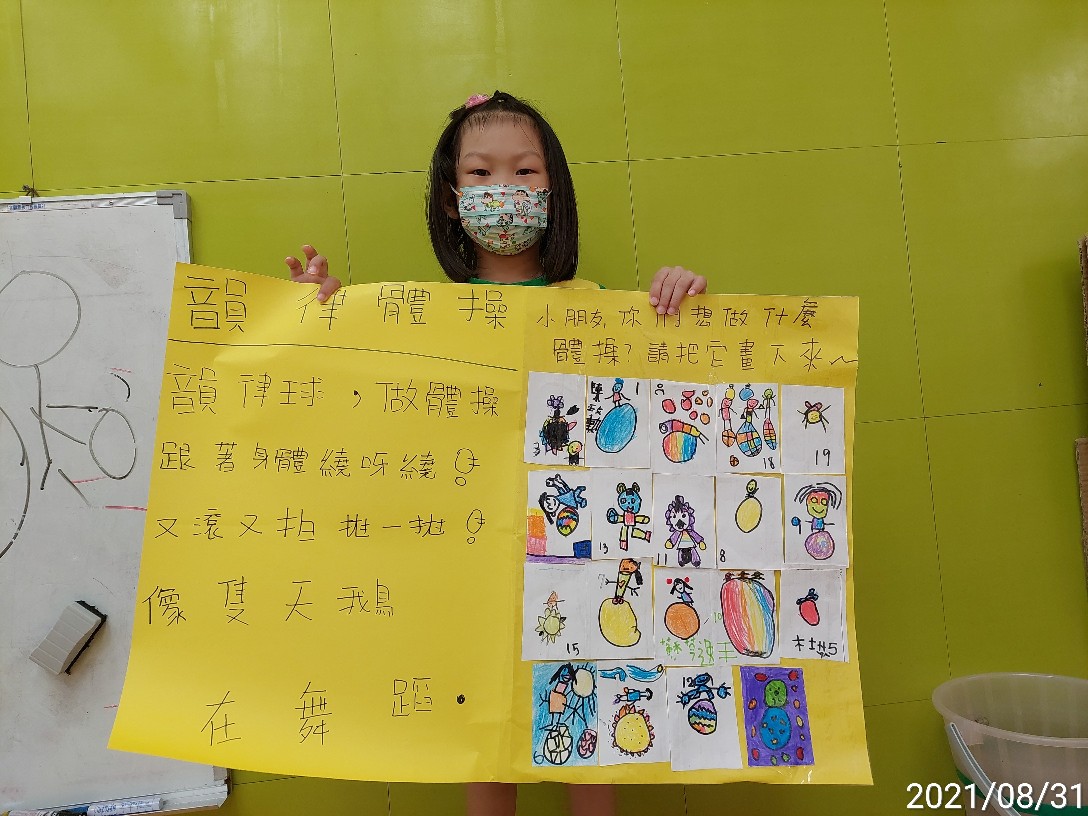 韻律體操
韻律球，做體操
跟著身體繞呀繞！
又滾又拍 拋一拋！
像隻天鵝
在舞蹈．
小朋友，你們想做什麼
體操？請把它畫下來～
3
1
18
19
13
11
8
9
15
10
5
6
12
2021/08/31